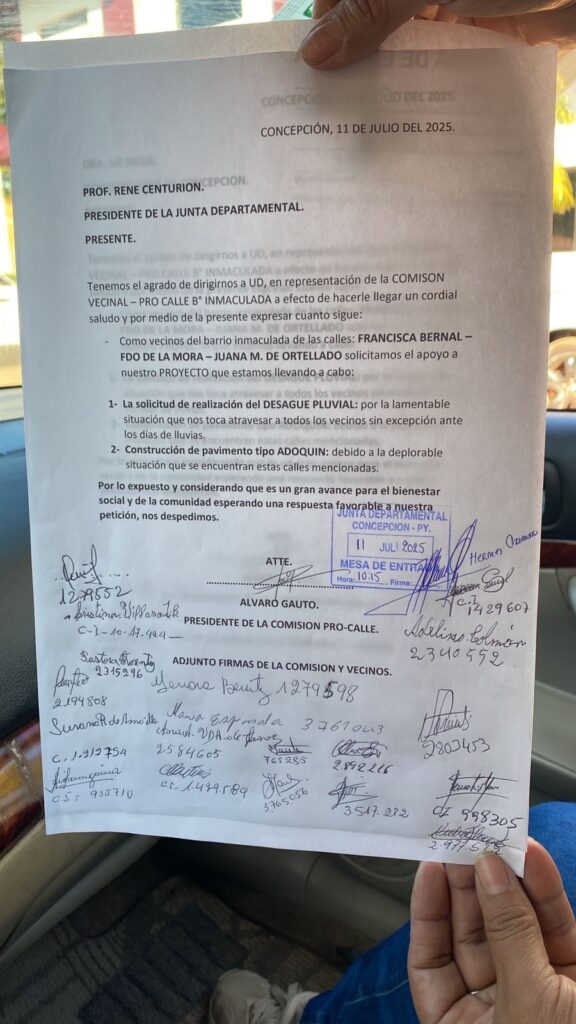 CONCEPCIÓN, 11 DE JULIO DEL 2025.
PROF. RENE CENTURION.
PRESIDENTE DE LA JUNTA DEPARTAMENTAL.
PRESENTE.
Tenemos el agrado de dirigirnos a UD, en representación de la COMISON
VECINAL – PRO CALLE B° INMACULADA a efecto de hacerle llegar un cordial
saludo y por medio de la presente expresar cuanto sigue:
- Como vecinos del barrio inmaculada de las calles: FRANCISCA BERNAL –
FDO DE LA MORA – JUANA M. DE ORTELLADO solicitamos el apoyo a
nuestro PROYECTO que estamos llevando a cabo:
1- La solicitud de realización del DESAGUE PLUVIAL: por la lamentable
situación que nos toca atravesar a todos los vecinos sin excepción ante
los días de lluvias.
2- Construcción de pavimento tipo ADOQUIN: debido a la deplorable
situación que se encuentran estas calles mencionadas.
Por lo expuesto y considerando que es un gran avance para el bienestar
social y de la comunidad esperando una respuesta favorable a nuestra
petición, nos despedimos.
JUNTA DEPARTAMENTAL
CONCEPCION - PY.
11 JULI 2025
MESA DE ENTRADA
Hora: 10:15 Firma:
ATTE.
ALVARO GAUTO.
PRESIDENTE DE LA COMISION PRO-CALLE.
ADJUNTO FIRMAS DE LA COMISION Y VECINOS.
1279552
Hermes
C.I. 1429607
2340592
2315296
2194808
Benitez 1279598
Maria Espinola 3761003
2803453
C. 1.912754
2584605
768285
2892226
935710
CI. 1.499.589
3765056
3517.232
CI 998305
2.977.595